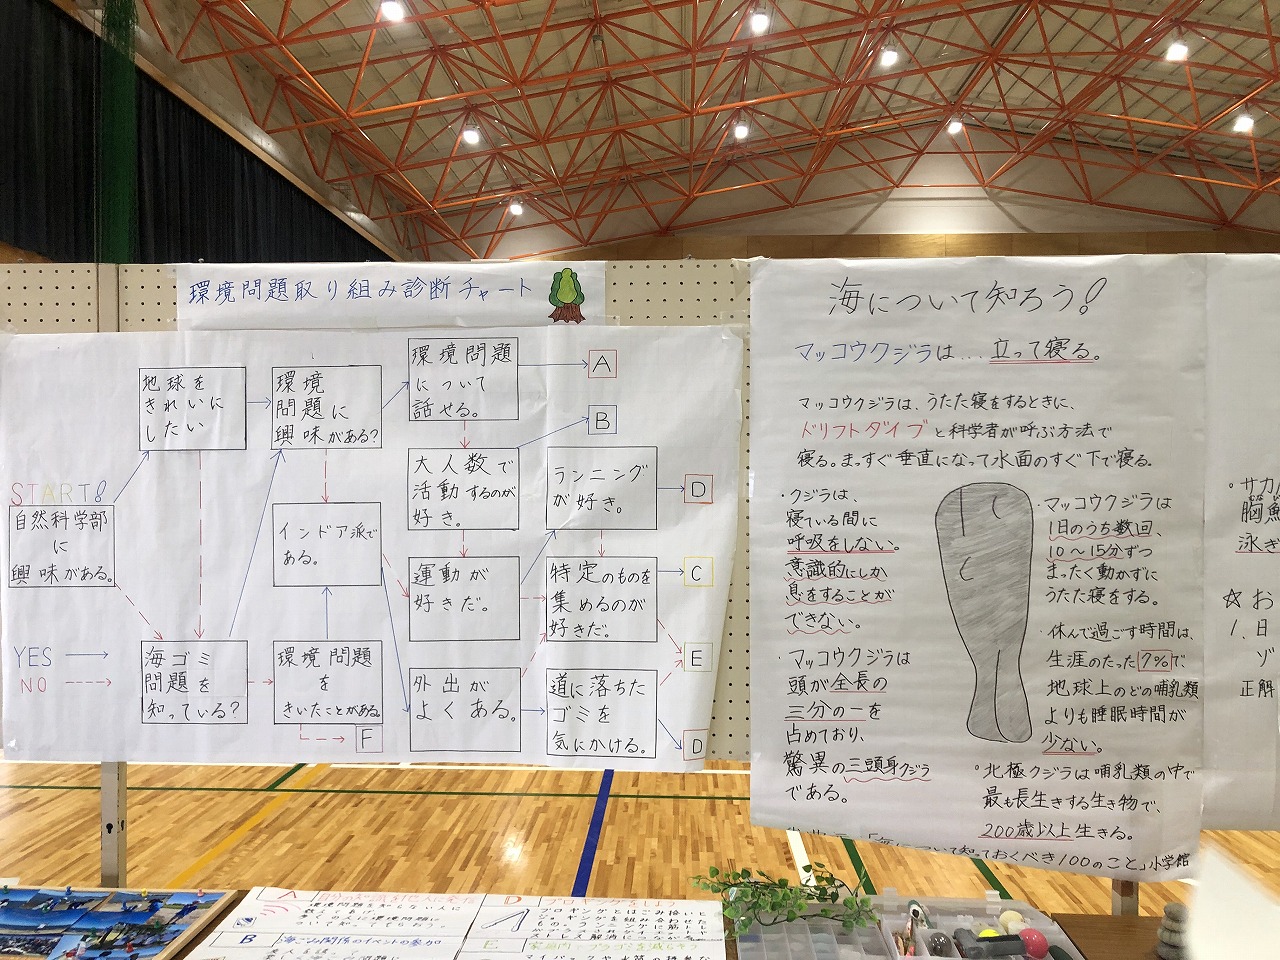 環境問題取り組み診断チャート
START!
自然科学部
に
興味がある。
YES
NO
地球を
きれいに
したい
海ゴミ
問題を
知っている?
環境
問題に
興味がある?
インドア派で
ある。
環境問題
を
きいたことがある。
F
環境問題
について
話せる。
大人数で
活動するのが
好き。
運動が
好きだ。
外出が
よくある。
ランニング
が好き。
特定のものを
集めるのが
好きだ。
道に落ちた
ゴミを
気にかける。
A
B
D
C
E
D
海について知ろう!
マッコウクジラは…立って寝る。
マッコウクジラは、うたた寝をするときに、
ドリフトダイブと科学者が呼ぶ方法で
寝る。まっすぐ垂直になって水面のすぐ下で寝る。
・クジラは、
寝ている間に
呼吸をしない。
意識的にしか
息をすることが
できない。
・マッコウクジラは
頭が全長の
三分の一を
占めており、
驚異の三頭身クジラ
である。
・マッコウクジラは
1日のうち数回、
10〜15分ずつ
まったく動かずに
うたた寝をする。
・休んで過ごす時間は、
生涯のたった7%で
地球上のどの哺乳類
よりも睡眠時間が
少ない。
・北極クジラは哺乳類の中で
最も長生きする生き物で、
200歳以上生きる。
について知っておくべき100のこと」小学館
・サカ
胸
泳ぎ
☆お
1、日
ゾ
正解
A
B 海ごみ関係のイベントの参加
D プロギングをしよう
プロギングとはごみ拾いと
ジョギングを組み合わせた
E 家庭内でプラゴミを減らそう